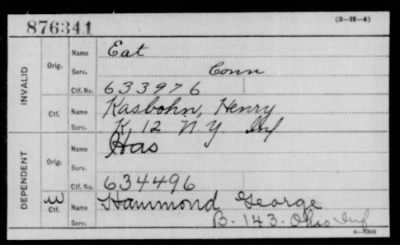 876341
(3-H-4)
INVALID
Orig.
Name Eat
Serv. Conn
Ctf. No. 633976
Ctf.
Name Kasbohn, Henry
Serv. K 12 N.Y. Inf
DEPENDENT
Orig.
Name Has
Serv.
Ctf. No. 634496
W Ctf.
Name Hammond George
Serv. B-143-Ohio Inf